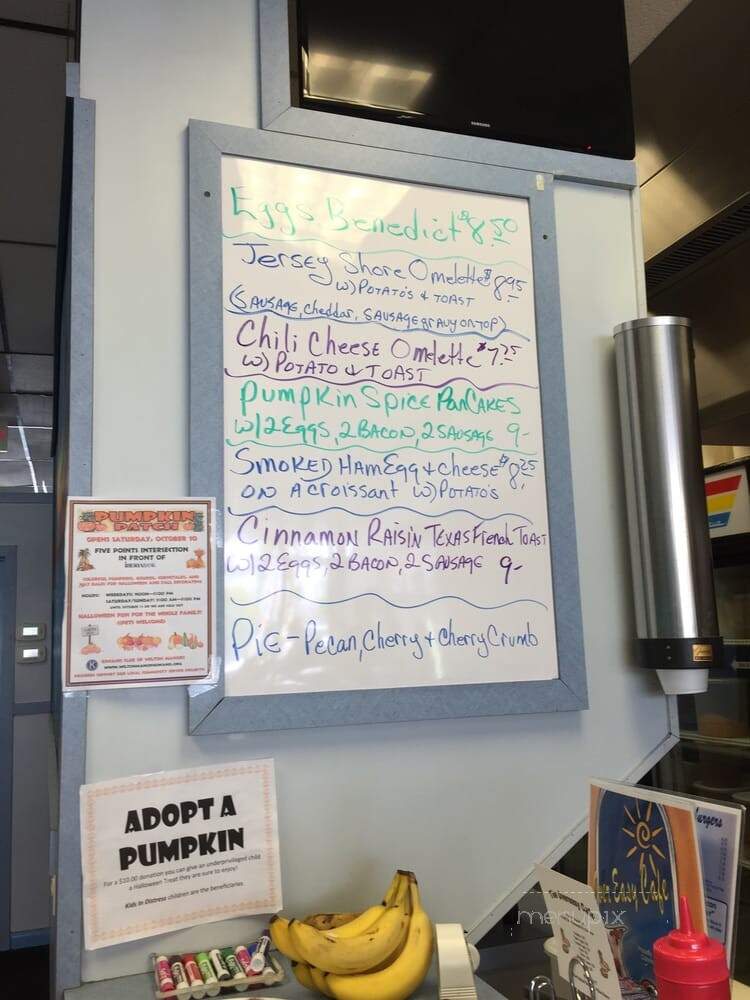 SAMSUNG
Eggs Benedict $8.50
Jersey Shore Omelette $8.95
w) POTATO'S & TOAST
(SAUSAGE, cheddar, SAUSAGE gravy on top)
Chili Cheese Omelette $7.75
w) POTATO & TOAST
Pumpkin Spice PanCakes
w/2 Eggs, 2 BACON, 2 SAUSAGE 9-
SMOKED Ham Egg & cheese $8.25
ON A croissant w) POTATO'S
Cinnamon Raisin Texas French Toast
w/2 Eggs, 2 BACON, 2 SAUSAGE 9-
Pie - Pecan, Cherry & Cherry Crumb
PUMPKIN
PATCH
OPENS SATURDAY, OCTOBER 10
FIVE POINTS INTERSECTION
IN FRONT OF
HALLOWEEN FUN FOR THE WHOLE FAMILY!
(PET) WELCOME!
ADOPT A
PUMPKIN
For a $10.00 donation you can give an underprivileged child
a Halloween Treat they are sure to enjoy!
Kids In Distress children are the beneficiaries
urgers
Over Easy Cafe
menupix